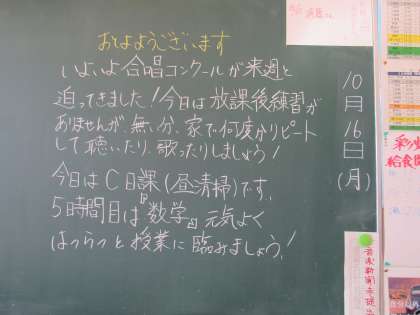 おはようございます
いよいよ合唱コンクールが来週と
迫ってきました！今日は放課後練習が
ありませんが、無い分、家で何度かリピート
して聴いたり、歌ったりしましょう！
今日はC日課（昼清掃）です。
5時間目は"数学"元気よく
はつらつと授業に臨みましょう！
10月16日（月）